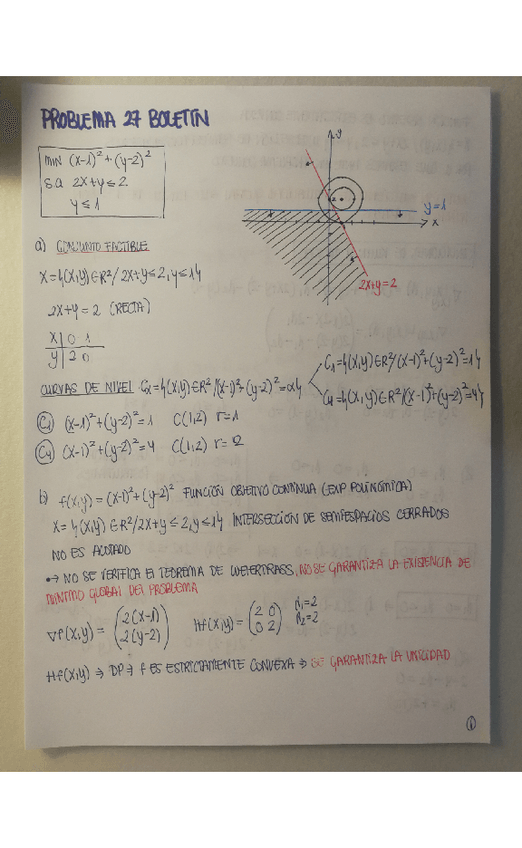 PROBLEMA 27 BOLETÍN
MIN (x-1)²+(y-2)²
S.A 2x+y≤2
y≤1
y
y=1
x
2x+y=2
a) CONJUNTO FACTIBLE
X={(x,y)∈R²/ 2x+y≤2, y≤1}
2x+y=2 (RECTA)
x | 0 1
y | 2 0
CURVAS DE NIVEL Cα={(x,y)∈R²/(x-1)²+(y-2)²=α}
C₁={(x,y)∈R²/(x-1)²+(y-2)²=1}
C₄={(x,y)∈R²/(x-1)²+(y-2)²=4}
C₁ (x-1)²+(y-2)²=1 C(1,2) r=1
C₄ (x-1)²+(y-2)²=4 C(1,2) r=2
b) f(x,y)=(x-1)²+(y-2)² FUNCIÓN OBJETIVO CONTINUA (EXP POLINÓMICA)
X={(x,y)∈R²/2x+y≤2, y≤1} INTERSECCIÓN DE SEMIESPACIOS CERRADOS
NO ES ACOTADO
→ NO SE VERIFICA EL TEOREMA DE WEIERTRASS, NO SE GARANTIZA LA EXISTENCIA DE
MÍNIMO GLOBAL DEL PROBLEMA
∇f(x,y)=(2(x-1) 2(y-2)) Hf(x,y)=(2 0 0 2) Λ₁=2 Λ₂=2
Hf(x,y) ⇒ DP ⇒ f ES ESTRICTAMENTE CONVEXA ⇒ SE GARANTIZA LA UNICIDAD
①